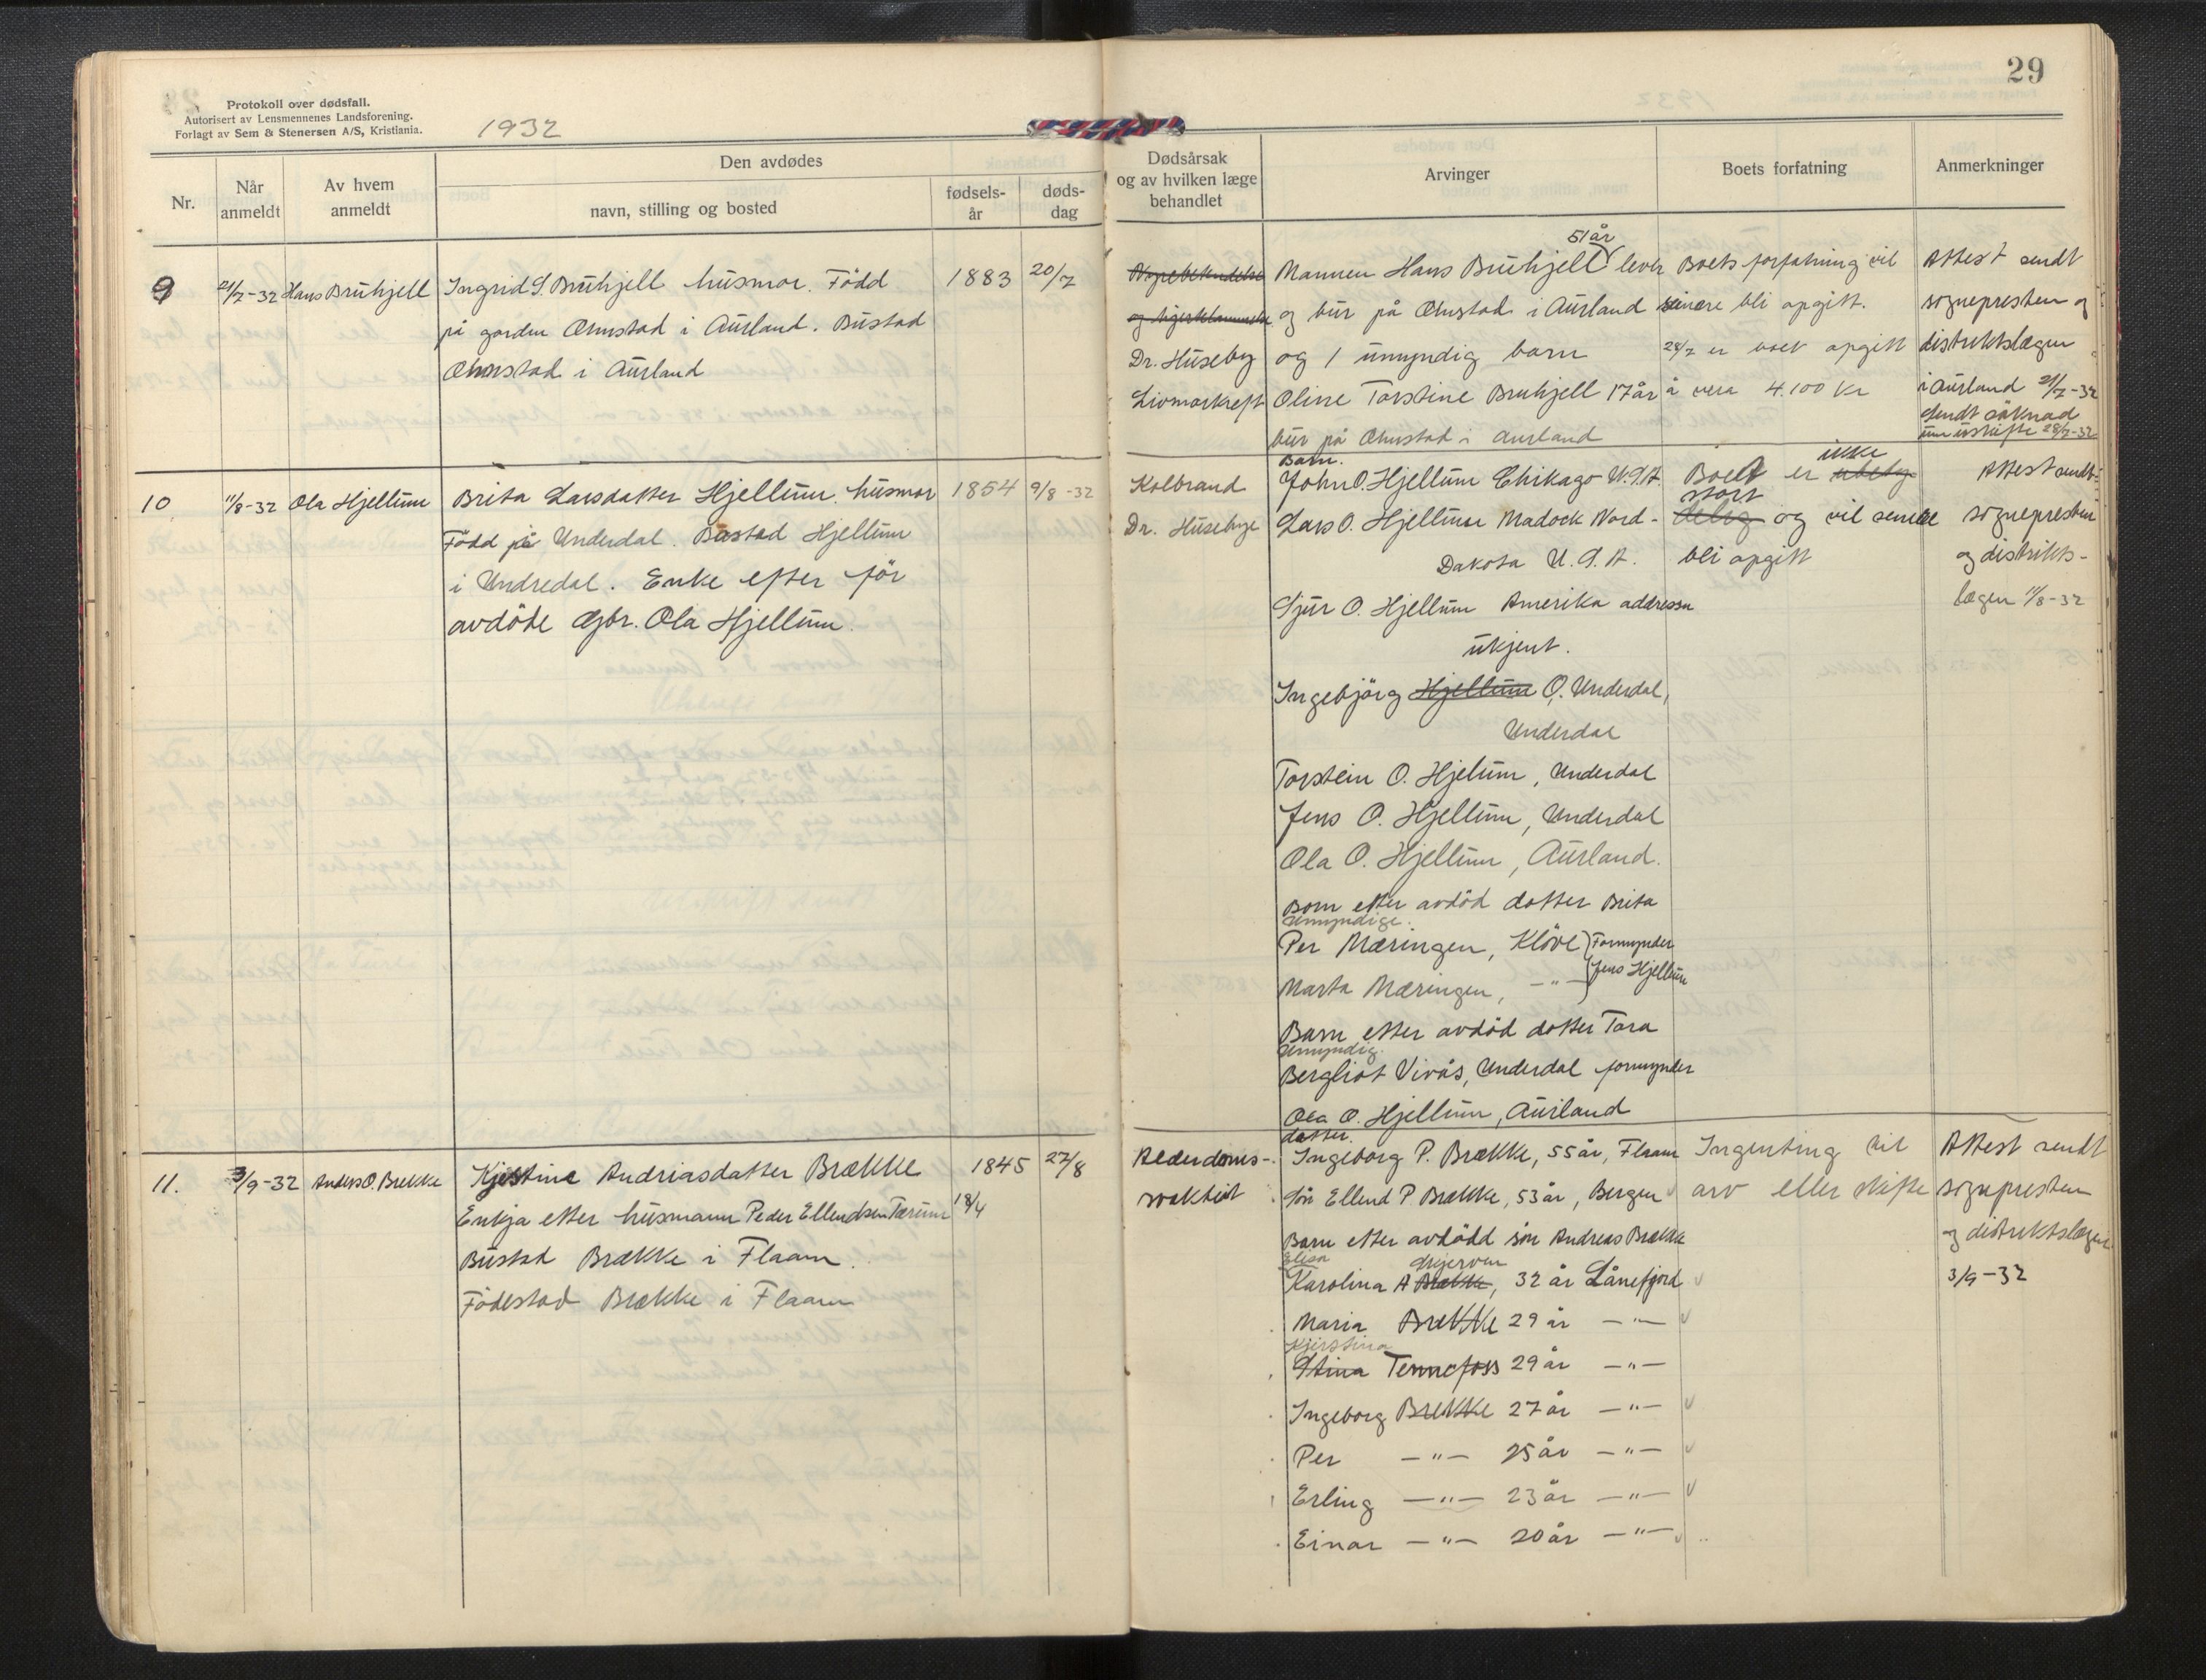 Protokoll over dødsfall.
Autorisert av Lensmennenes Landsforening.
Forlagt av Sem & Stenersen A/S, Kristiania.
1932
Nr.
Når anmeldt
Av hvem anmeldt
Den avdødes
navn, stilling og bosted
fødsels-år
døds-dag
9
21/7-32
Hans Bruhjell
Ingrid S. Bruhjell husmor. Född
på garden Ohnstad i Aurland. Bustad
Ohnstad i Aurland
1883
20/7
10
11/8-32
Ola Hjellum
Brita Larsdatter Hjellum. husmor
Född på Underdal. Bustad Hjellum
i Undredal. Enke efter för
avdöde gbr. Ola Hjellum.
1854
9/8-32
11.
3/9-32
Anders O. Brekke
Kjestina Andriasdatter Brække
Enkja etter husmann Peder Ellendsen Tærum
Bustad Brække i Flaam.
Födestad Brække i Flaam
1845
18/4
27/8
29
Dødsårsak
og av hvilken læge
behandlet
Arvinger
Boets forfatning
Anmerkninger
Dr. Huseby
Livmorkreft
51 år
Mannen Hans Bruhjell lever
og bur på Ohnstad i Aurland
og 1 umyndig barn
Oline Torstine Bruhjell 17 år
bur på Ohnstad i Aurland
Boets forfatning vil
seinere bli opgitt.
28/7 er boet opgitt
å vera 4.100 kr
Attest sendt
sognepresten og
distriktslægen
i Aurland 21/7-32
Sendt söknad
um uskifte 28/7-32
Kolbrand
Dr. Husebye
Barn.
John O. Hjellum Chikago U.S.A.
Lars O. Hjellum Madock Nord-
Dakota U.S.A.
Sjur O. Hjellum Amerika addressa
ukjent.
Ingebjörg Hjellum O. Underdal,
Underdal
Torstein O. Hjelum, Underdal
Jens O. Hjellum, Underdal
Ola O. Hjellum, Aurland.
Born etter avdöd dotter Brita
Umyndige.
Per Mæringen, Klöve } Formynder
Marta Mæringen, -"- } Jens Hjellum
Barn etter avdöd dotter Tora
Umyndig.
Bergliot Virås, Underdal formynder
Ola O. Hjellum, Aurland
ikke
Boet er ubety
stort
delig og vil senere
bli opgitt
Attest sendt
sognepresten
og distrikts-
lægen 11/8-32
Alderdoms-
svakheit
datter.
Ingeborg P. Brække, 55 år, Flaam
Sön Ellend P Brække, 53 år, Bergen
Barn etter avdödd sön Andreas Brække
Elisa
Skjerven
Karolina A Brække, 32 år Lånefjord
Maria Brekke 29 år -"-
Kjerstina
Stina Tennefoss 29 år -"-
Ingeborg Brekke 27 år -"-
Per -"- 25 år -"-
Erling -"- 23 år -"-
Einar -"- 20 år -"-
Ingenting til
arv eller skifte
Attest sendt
sognpresten
og distriktslægen
3/9-32